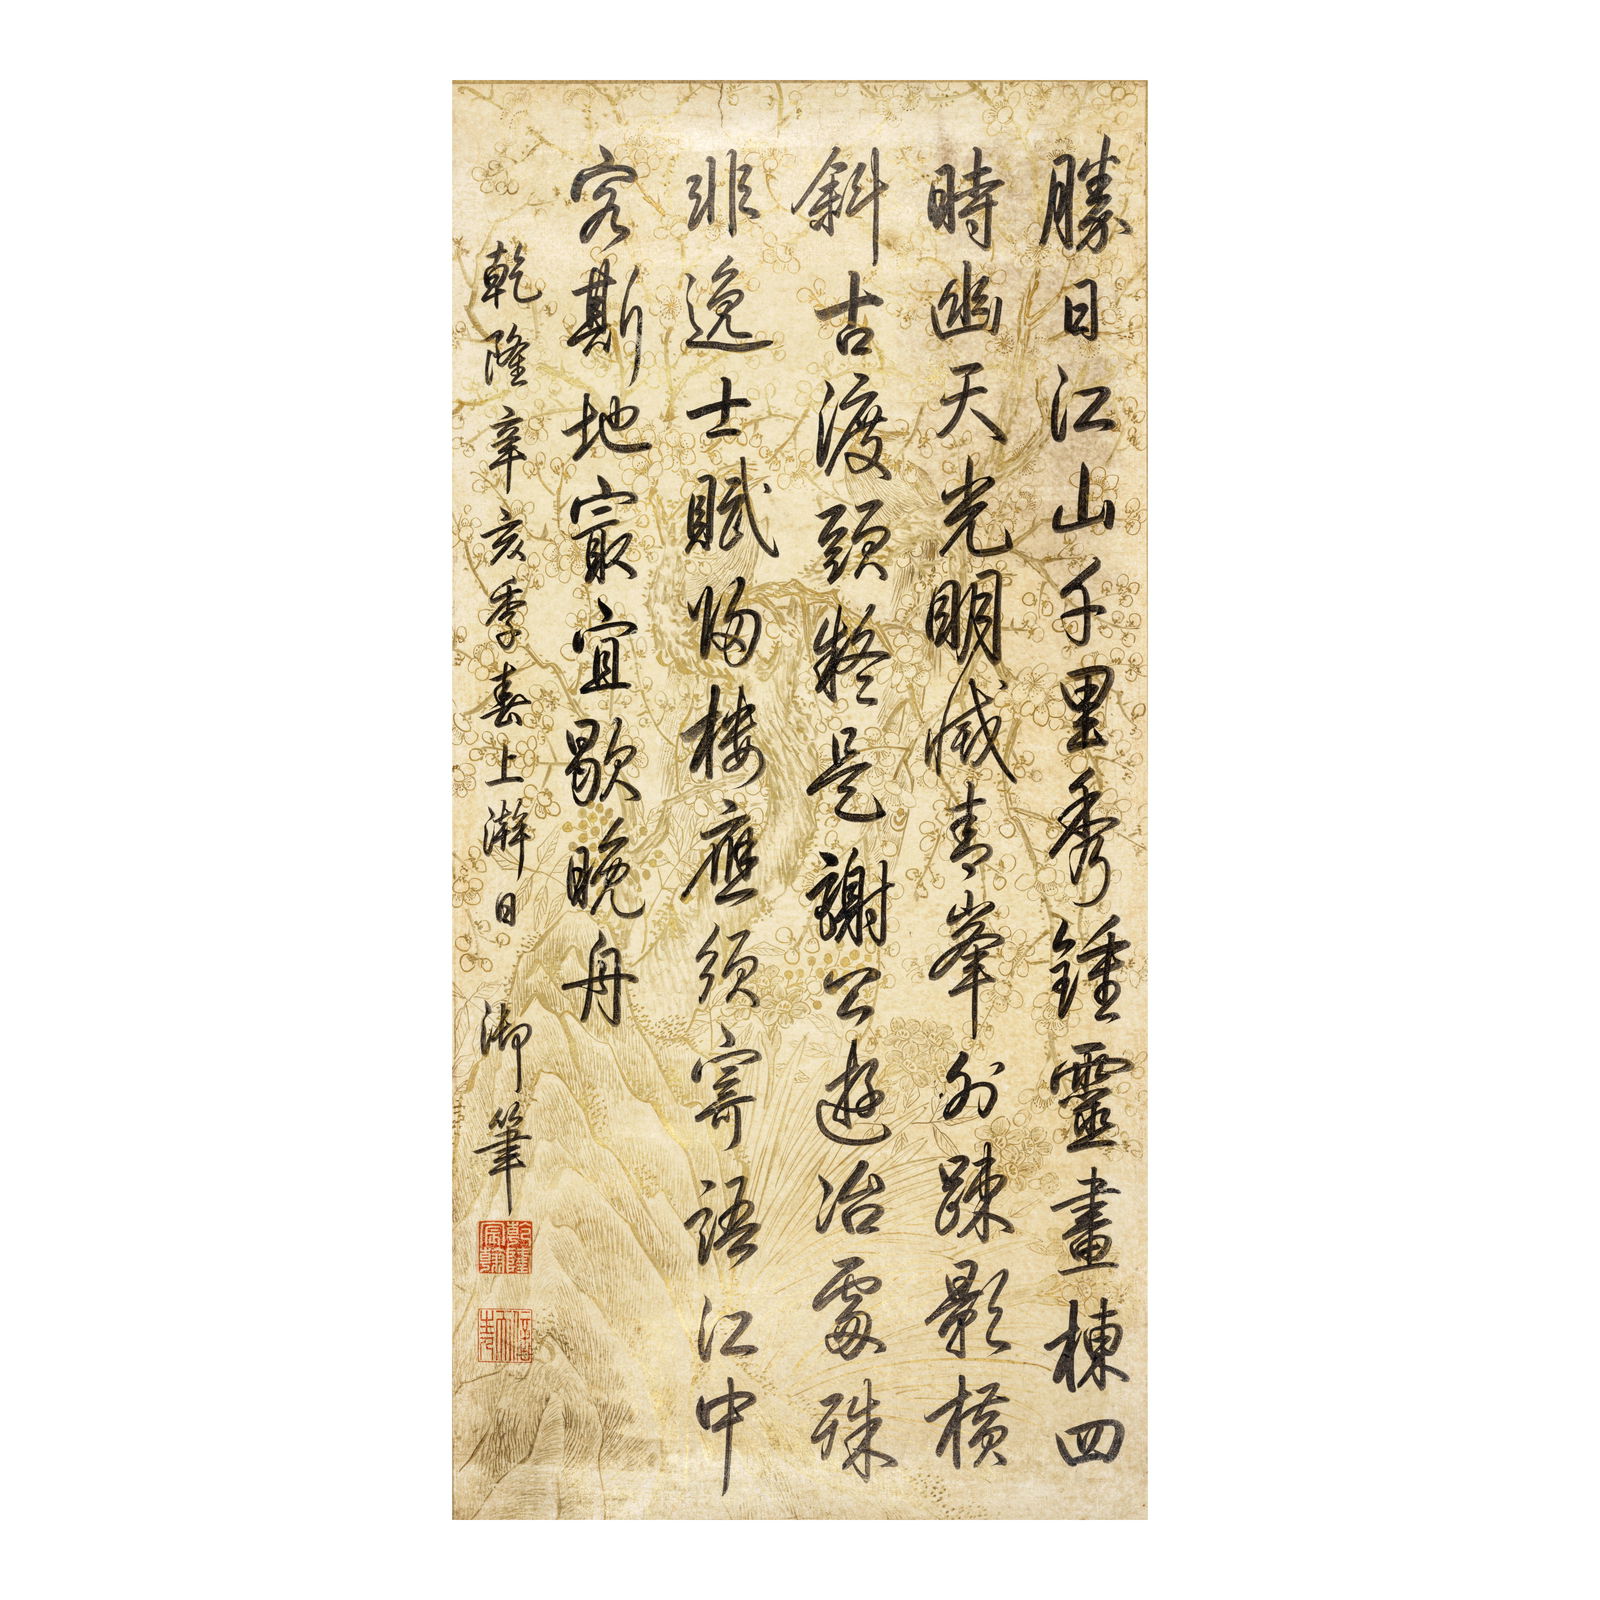 勝日江山千里秀鍾靈畫棟四
時幽天光明滅青峯外踈影橫
斜古渡頭疑是謝公遊冶處殊
非逸士賦歸樓應須寄語江中
客斯地㝡宜歇晚舟
乾隆辛亥季春上澣日 御筆
乾隆宸翰